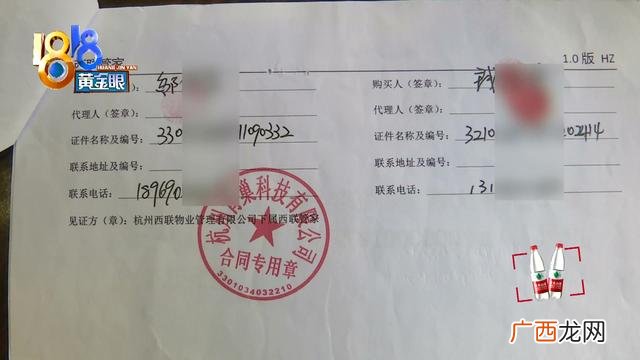 1818
黄金眼
HUANG JIN YAN
管家
1.0 版 HZ
（签章）：邹
购买人（签章）：
代理人（签章）：
代理人（签章）：
证件名称及编号：330 11090332
证件名称及编号：3210 202414
联系地址及编号：
联系地址及编号：
联系电话：189690
联系电话：131
见证方（章）：杭州西联物业管理有限公司下属西联管家
杭州 巢科技有限公司
合同专用章
3301034032210
广西龙网